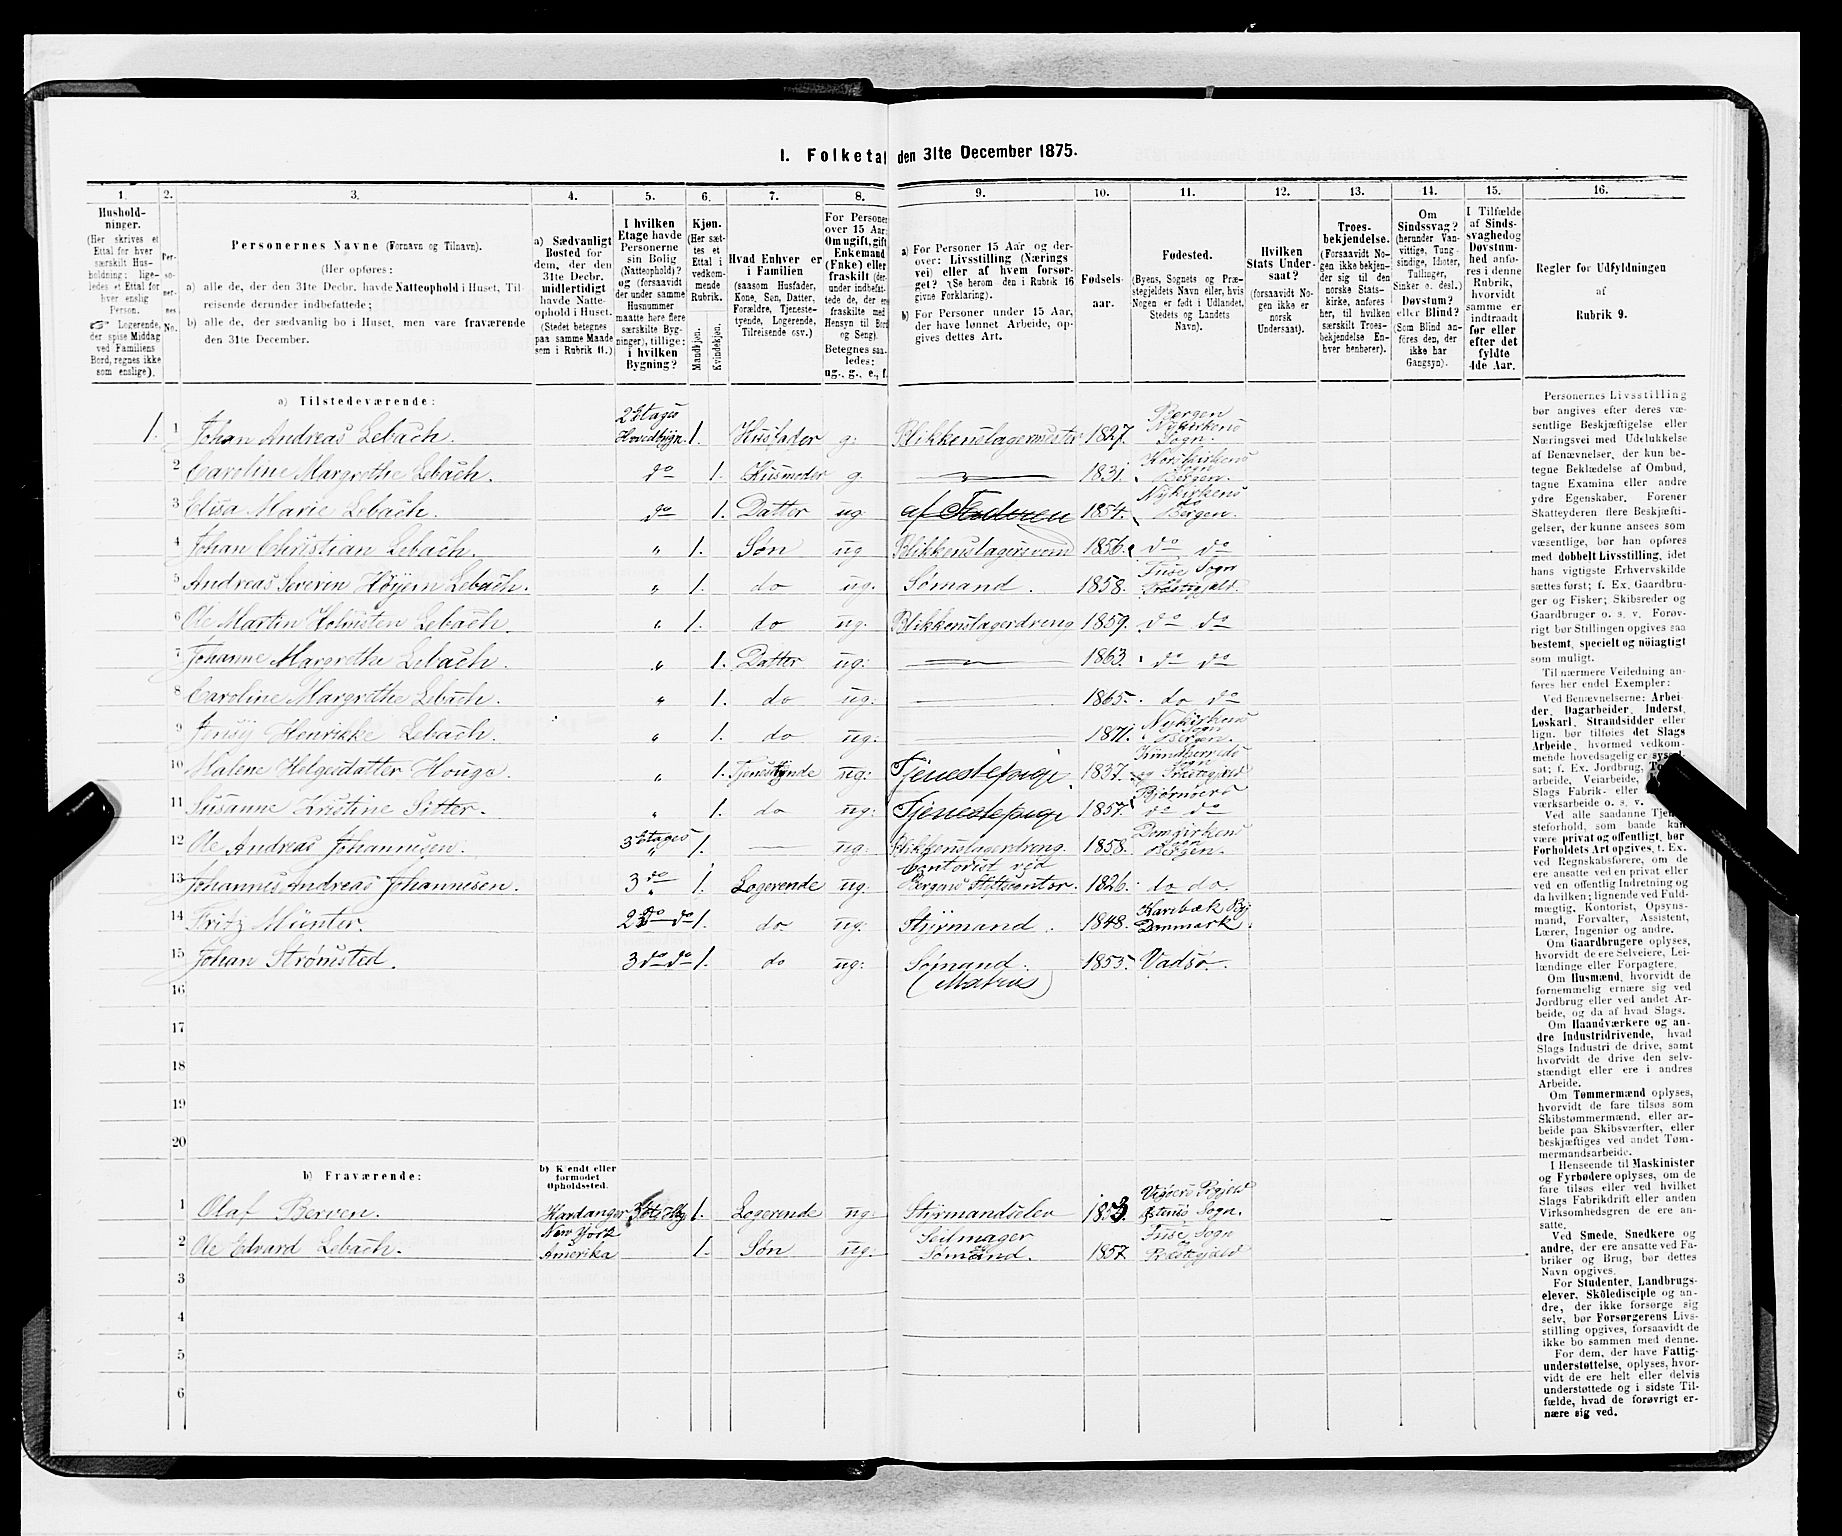 I. Folketal den 31te December 1875.
1. 2. 3. 4. 5. 6. 7. 8. 9. 10. 11. 12. 13. 14. 15. 16.
Hushold-
ninger.
(Her skrives et
Ettal for hver
særskilt Hus-
holdning; lige-
ledes et Ettal for
hver enslig
Person.
☞ Logerende,
der spise Middag
ved Familiens
Bord, regnes ikke
som enslige).
Per-
so-
ner-
nes
No.
Personernes Navne (Fornavn og Tilnavn).
(Her opføres:
a) alle de, der den 31te Decbr. havde Natteophold i Huset, Til-
reisende derunder indbefattede;
b) alle de, der sædvanlig bo i Huset, men vare fraværende
den 31te December.
a) Sædvanligt
Bosted for
dem, der den
31te Decbr.
midlertidigt
havde Natte-
ophold i Huset.
(Stedet betegnes
paa samme Maade
som i Rubrik 11.)
I hvilken
Etage havde
Personerne
sin Bolig
(Natteophold)?
og (forsaavidt
der under samme
Husnummer
maatte høre flere
særskilte Byg-
ninger), tillige:
i hvilken
Bygning?
Kjøn.
(Her sæt-
tes et
Ettal i
vedkom-
mende
Rubrik.
Mandkjøn.
Kvindekjøn.
Hvad Enhver er
i Familien
(saasom Husfader,
Kone, Søn, Datter,
Forældre, Tjeneste-
tyende, Logerende,
Tilreisende osv.)
For Personer
over 15 Aar:
Om ugift, gift
Enkemand
(Enke) eller
fraskilt (der-
under indbefat-
tede de, der ere
fraskilte med
Hensyn til Bord
og Seng).
Betegnes saa-
ledes:
ug., g., e., f.
a) For Personer 15 Aar og der-
over: Livsstilling (Nærings-
vei) eller af hvem forsør-
get? (Se herom den i Rubrik 16
givne Forklaring).
b) For Personer under 15 Aar,
der have lønnet Arbeide, op-
gives dettes Art.
Fødsels-
aar.
Fødested.
(Byens, Sognets og Præ-
stegjeldets Navn eller, hvis
Nogen er født i Udlandet,
Stedets og Landets
Navn).
Hvilken
Stats Under-
saat?
(forsaavidt No-
gen ikke er
norsk
Undersaat).
Troes-
bekjendelse.
(Forsaavidt No-
gen ikke bekjen-
der sig til den
norske Stats-
kirke, anføres
her, til hvilken
særskilt Troes-
bekjendelse En-
hver henhører).
Om
Sindssvag?
(herunder Van-
vittige, Tung-
sindige, Idioter,
Tullinger,
Sinker o. desl.)
Døvstum?
eller Blind?
(Som Blind an-
føres den, der
ikke har
Gangsyn).
I Tilfælde
af Sinds-
svaghed og
Døvstum-
hed anfø-
res i denne
Rubrik,
hvorvidt
samme er
indtraadt
før eller
efter det
fyldte
4de Aar.
Regler for Udfyldningen
af
Rubrik 9.
a) Tilstedeværende:
1. 1 Johan Andreas Lebach. 2 Etages Hovedbygn. 1. Husfader g: Blikkenslagermester 1827. Bergen Nykirkens Sogn.
2 Caroline Margrethe Lebach. do 1. Husmoder g. 1831. Korskirkens Sogn Bergen.
3 Elisa Marie Lebach. do 1. Datter ug. af Faderen 1854. Nykirkens do Bergen.
4 Johan Christian Lebach. " 1. Søn ug Blikkenslagersvend 1856. do do
5 Andreas Severin Høyem Lebach. " 1. do ug. Sømand. 1858. Fuse Sogn Præstegjeld.
6 Ole Martin Holmsten Lebach. " 1. do ug. Blikkenslagerdreng 1859. do do
7 Johanne Margrethe Lebach. " 1. Datter ug: 1863. do do
8 Caroline Margrethe Lebach. " 1. do ug: 1865. do do
9 Jensy Henrikke Lebach. " 1. do ug: 1871. Nykirkens Sogn Bergen.
10 Malene Helgesdatter Houge. " 1. Tjenestynde ug: Tjenestepige. 1837. Kvindherreds Sogn og Præstegjeld
11 Susanne Kristine Sitter. " 1. do ug: Tjenestepige 1857. do do
12 Ole Andreas Johannesen. 3 Etages " 1. ug: Blikkenslagerdreng. 1858. Domkirkens Sogn Bergen.
13 Johannes Andreas Johannesen. 3 do " 1. Logerende ug: Contorist ved Bergens Stiftscontor. 1826. do do.
14 Fritz Münter. 2 do do 1. do ug: Styrmand. 1848. Karebæk By Danmark.
15 Johan Strømsted. 3 do do 1. do ug: Sømand. (Matros) 1855. Vadsø.
16
17
18
19
20
b) Fraværende:
b) Kjendt eller
formodet
Opholdssted.
1 Olaf Berven. Hardanger 1. Logerende ug: Styrmandselev 1853. Vigøers Prgjeld Østensø Sogn.
2 Ole Edvard Lebach. New York Amerika 1. Søn ug: Seilmager Sømand. 1857 Fuse Sogn og Præstgjeld
3
4
5
6
Personernes Livsstilling
bør angives efter deres væ-
sentlige Beskjæftigelse eller
Næringsvei med Udelukkelse
af Benævnelser, der kun be-
tegne Beklædelse af Ombud,
tagne Examina eller andre
ydre Egenskaber. Forener
Skatteyderen flere Beskjæfti-
gelser, der kunne ansees som
væsentlige, bør han opføres
med dobbelt Livsstilling, idet
hans vigtigste Erhvervskilde
sættes først; f. Ex. Gaardbru-
ger og Fisker; Skibsreder og
Gaardbruger o. s. v. Forøv-
rigt bør Stillingen opgives saa
bestemt, specielt og nöiagtigt
som muligt.
Til nærmere Veiledning an-
føres her endel Exempler:
Ved Benævnelserne: Arbei-
der, Dagarbeider, Inderst,
Løskarl, Strandsidder eller
lign. bør tilføies det Slags
Arbeide, hvormed vedkom-
mende hovedsagelig er syssel-
sat; f. Ex. Jordbrug,
arbeide, Veiarbeide,
Slags Fabrik- eller
værksarbeide o. s. v.
Ved alle saadanne Tjene-
steforhold, som baade kan
være privat og offentligt, bør
Forholdets Art opgives, t. Ex.
ved Regnskabsførere, om de
ere ansatte ved en privat eller
ved en offentlig Indretning og
da hvilken; lignende ved Fuld-
mægtig, Kontorist, Opsyns-
mand, Forvalter, Assistent,
Lærer, Ingeniør og andre.
Om Gaardbrugere oplyses,
hvorvidt de ere Selveiere, Lei-
lændinge eller Forpagtere.
Om Husmænd, hvorvidt de
fornemmelig ernære sig ved
Jordbrug eller ved andet Ar-
beide, og da af hvad Slags.
Om Haandværkere og an-
dre Industridrivende, hvad
Slags Industri de drive, samt
hvorvidt de drive den selv-
stændigt eller ere i andres
Arbeide.
Om Tømmermænd oplyses,
hvorvidt de fare tilsøs som
Skibstømmermænd, eller ar-
beide paa Skibsværfter, eller
beskjæftiges ved andet Tøm-
mermandsarbeide.
I Henseende til Maskinister
og Fyrbødere oplyses, om de
fare tilsøs eller ved hvilket
Slags Fabrikdrift eller anden
Virksomhedsgren de ere an-
satte.
Ved Smede, Snedkere og
andre, der ere ansatte ved Fa-
briker og Brug, bør dettes
Navn opgives.
For Studenter, Landbrugs-
elever, Skoledisciple og an-
dre, der ikke forsørge sig
selv, bør Forsørgerens Livs-
stilling opgives, forsaavidt de
ikke bo sammen med denne.
For dem, der have Fattig-
understøttelse, oplyses, hvor-
vidt de ere helt eller delvis
understøttede og i sidste Til-
fælde, hvad de forøvrigt er-
nære sig ved.